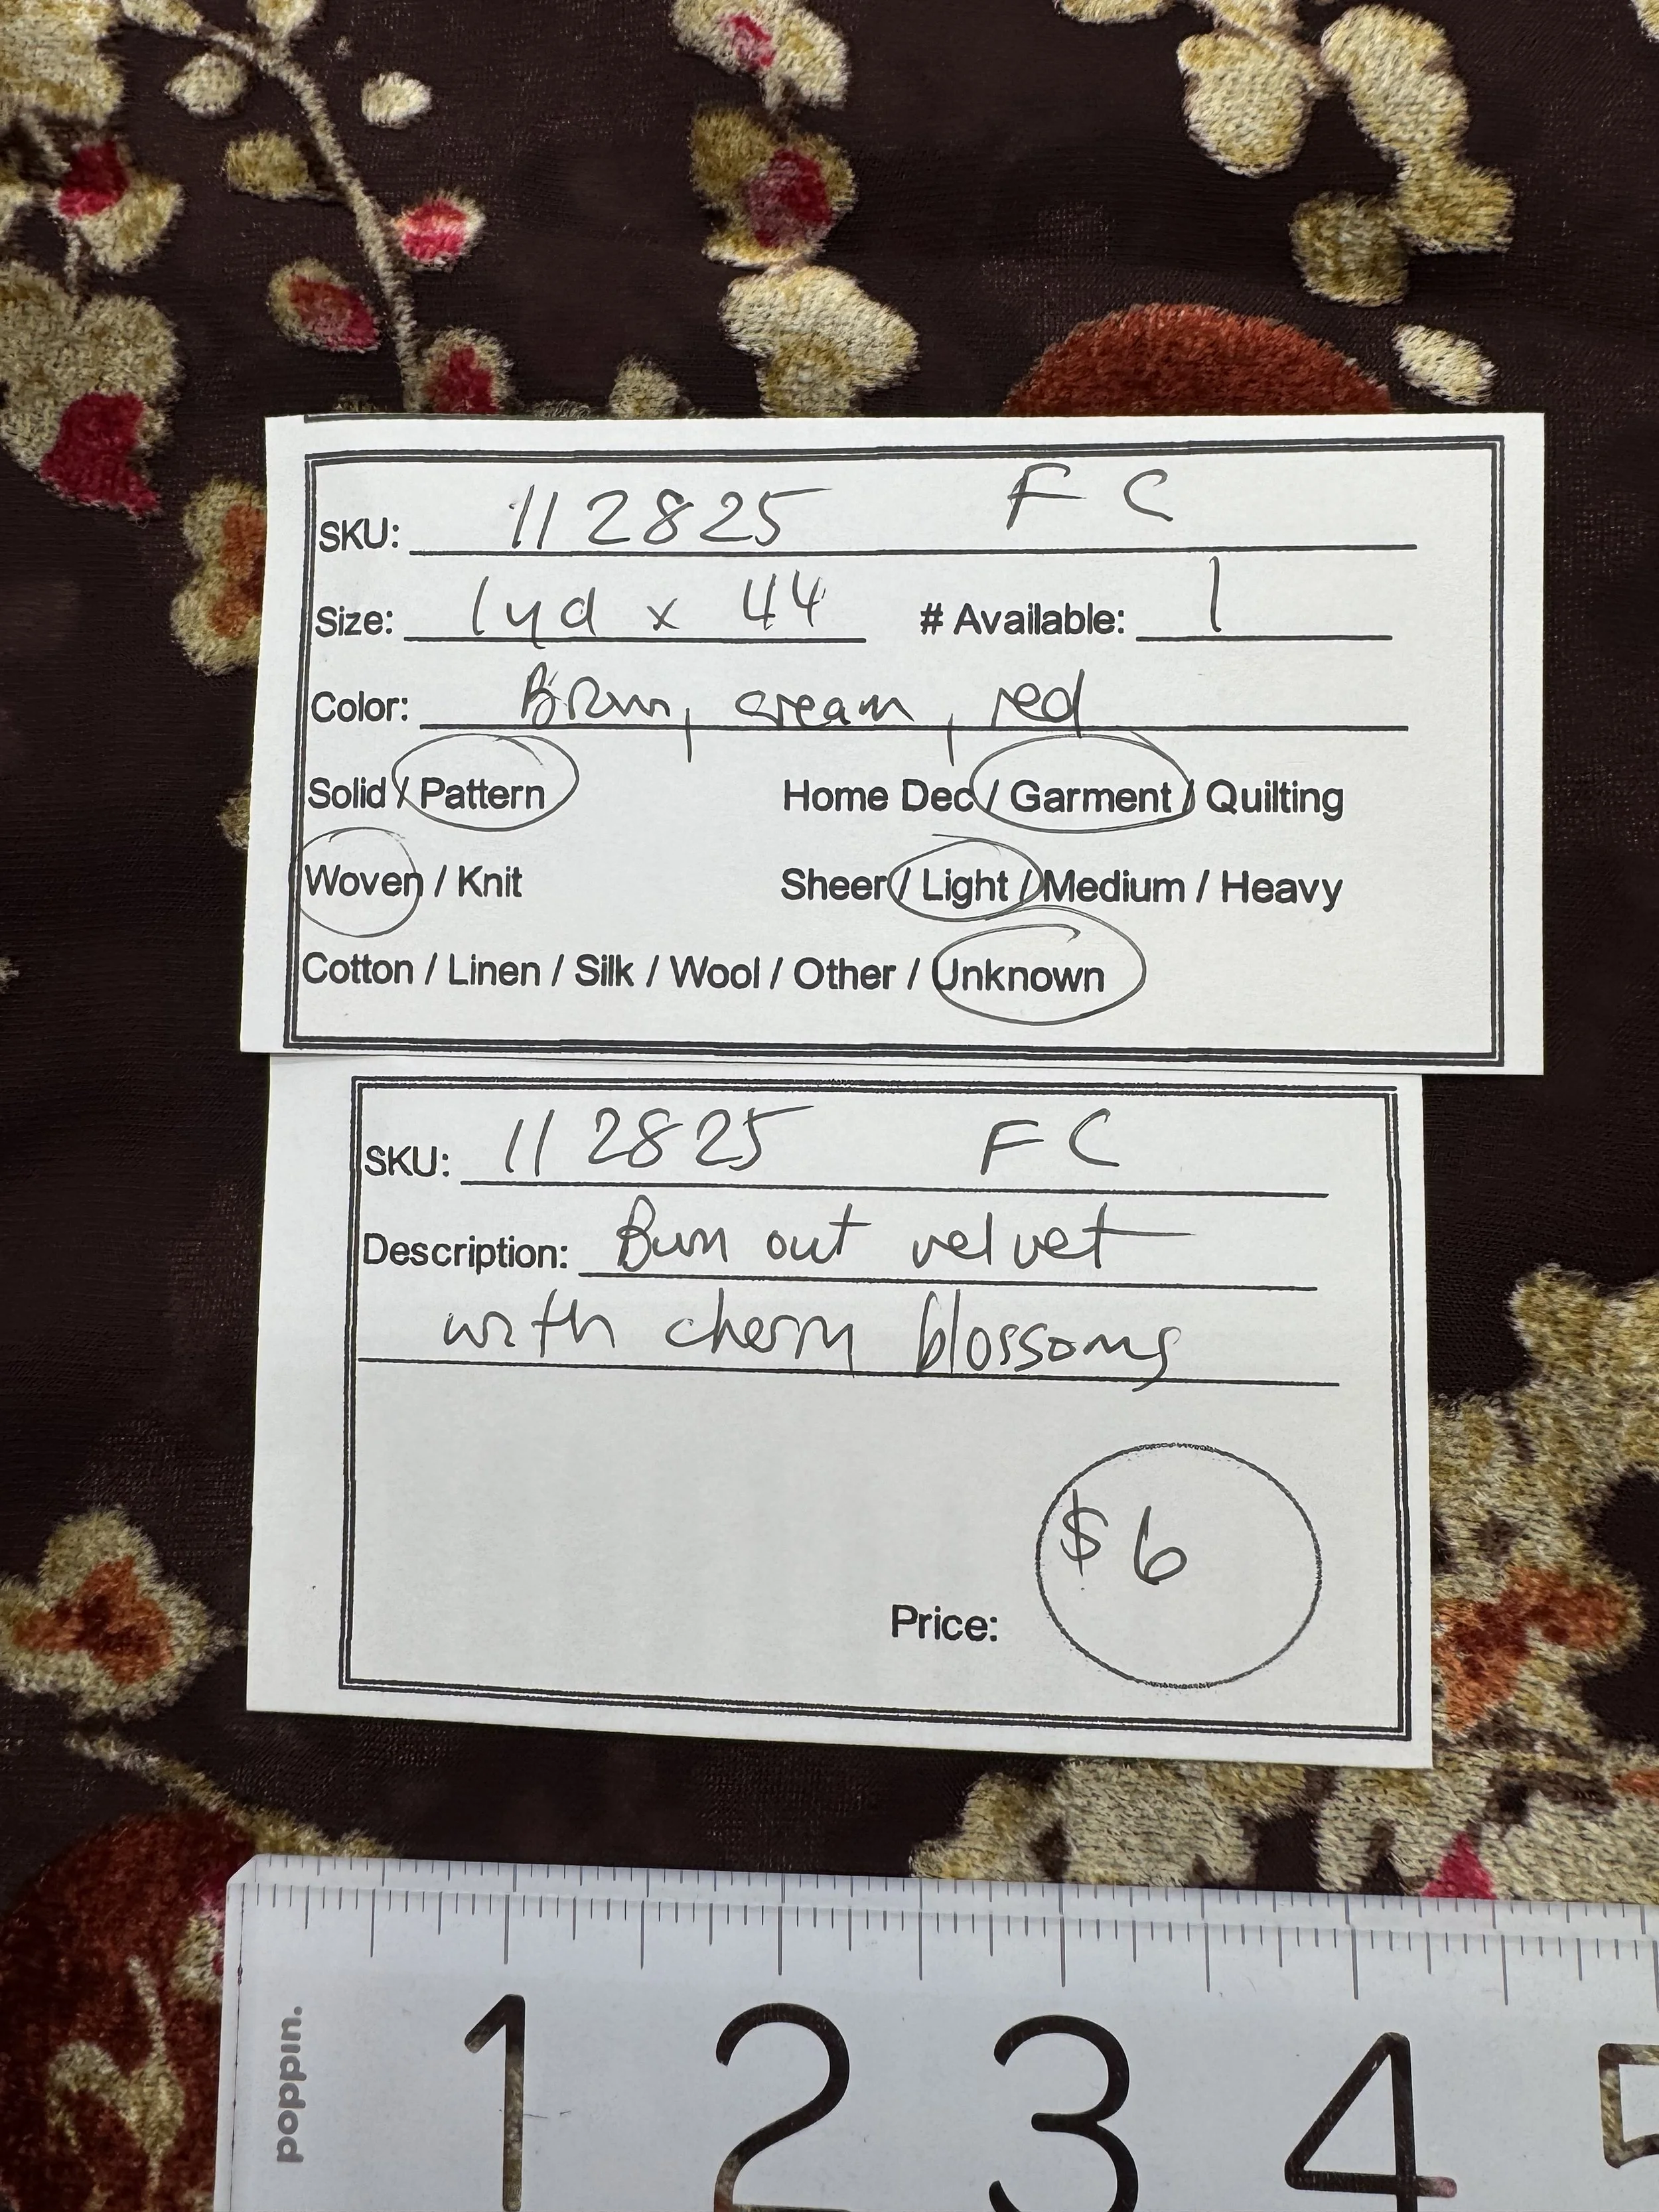 SKU: 112825 FC
Size: 1yd x 44 # Available: 1
Color: Brown, cream, red
Solid / Pattern Home Dec / Garment / Quilting
Woven / Knit Sheer / Light / Medium / Heavy
Cotton / Linen / Silk / Wool / Other / Unknown
SKU: 112825 FC
Description: Burn out velvet
with cherry blossoms
$6
Price:
poppin.
1 2 3 4 5